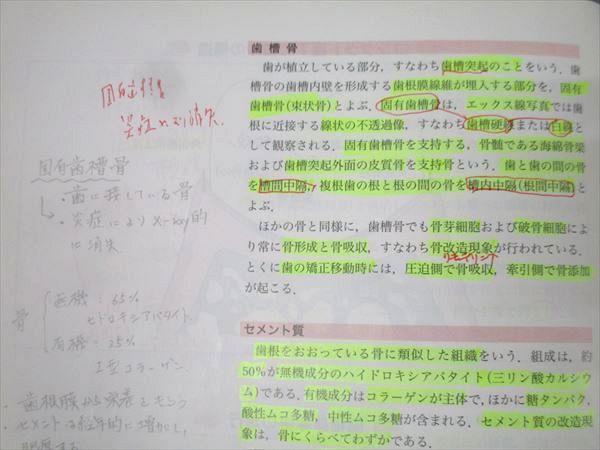 歯槽骨
歯が植立している部分，すなわち歯槽突起のことをいう．歯
槽骨の歯槽内壁を形成する歯根膜線維が埋入する部分を，固有
歯槽骨(束状骨)とよぶ．固有歯槽骨は，エックス線写真では歯
根に近接する線状の不透過像，すなわち歯槽硬線または白線と
して観察される．固有歯槽骨を支持する，骨髄である海綿骨梁
および歯槽突起外面の皮質骨を支持骨という．歯と歯の間の骨
を槽間中隔，複根歯の根と根の間の骨を槽内中隔(根間中隔)と
よぶ．
ほかの骨と同様に，歯槽骨でも骨芽細胞および破骨細胞によ
り常に骨形成と骨吸収，すなわち骨改造現象が行われている．
リモデリング
とくに歯の矯正移動時には，圧迫側で骨吸収，牽引側で骨添加
が起こる．
セメント質
歯根をおおっている骨に類似した組織をいう．組成は，約
50%が無機成分のハイドロキシアパタイト(三リン酸カルシウ
ム)である．有機成分はコラーゲンが主体で，ほかに糖タンパク，
酸性ムコ多糖，中性ムコ多糖が含まれる．セメント質の改造現
象は，骨にくらべてわずかである．
固有歯槽骨
炎症により消失
固有歯槽骨
・歯に接している骨
・炎症により X-ray的
に消失
骨
無機：65%
ヒドロキシアパタイト
有機：25%
I型コラーゲン
・歯根膜から栄養をもらう
・セメント質は経年的に増加し，